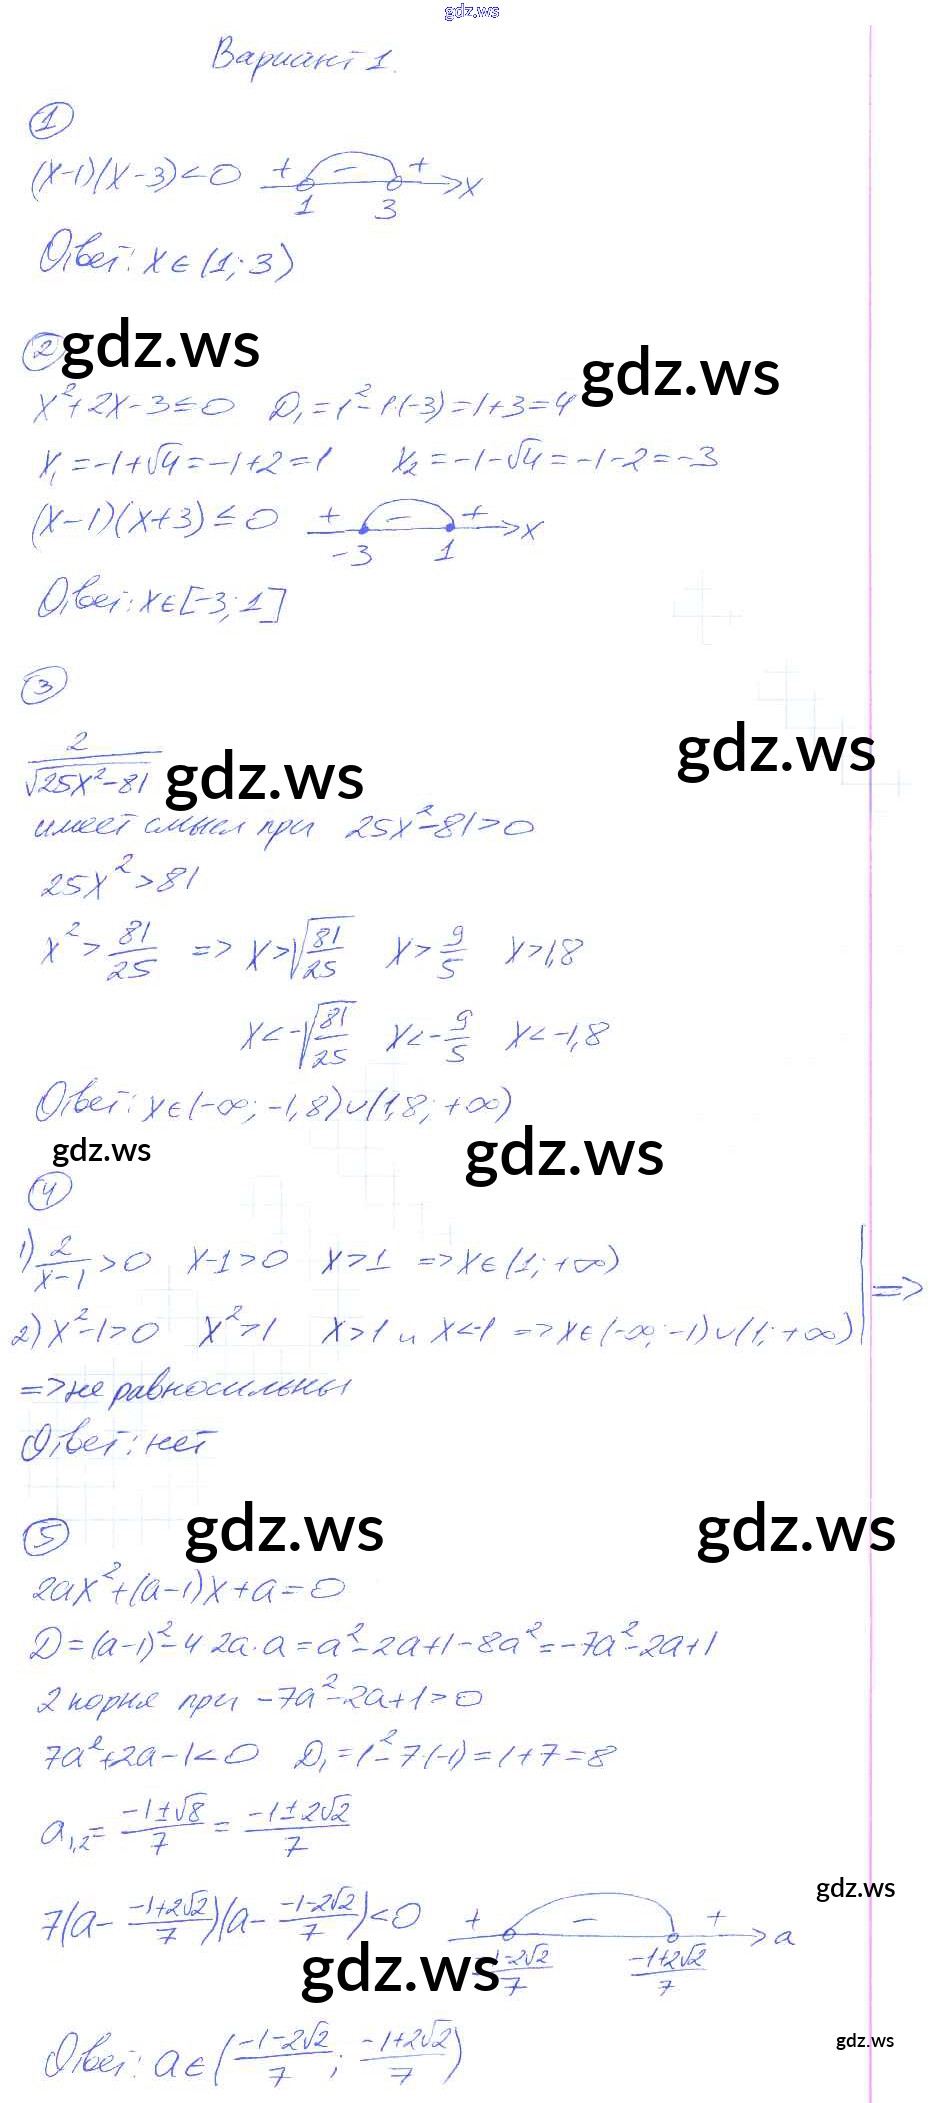 gdz.ws
Вариант 1.
1
(x-1)(x-3)<0 + - + x
1 3
Ответ: x∈(1;3)
2 gdz.ws
gdz.ws
x²+2x-3≤0 D₁=1²-1·(-3)=1+3=4
x₁=-1+√4=-1+2=1 x₂=-1-√4=-1-2=-3
(x-1)(x+3)≤0 + - + x
-3 1
Ответ: x∈[-3;1]
3
gdz.ws
2/√25x²-81 gdz.ws
имеет смысл при 25x²-81>0
25x²>81
x²>81/25 => x>√81/25 x>9/5 x>1,8
x<-√81/25 x<-9/5 x<-1,8
Ответ: x∈(-∞;-1,8)∪(1,8;+∞)
gdz.ws gdz.ws
4
1) 2/x-1>0 x-1>0 x>1 => x∈(1;+∞)
=>
2) x²-1>0 x²>1 x>1 и x<-1 => x∈(-∞;-1)∪(1;+∞)
=> не равносильны
Ответ: нет
5 gdz.ws gdz.ws
2ax²+(a-1)x+a=0
D=(a-1)²-4·2a·a=a²-2a+1-8a²=-7a²-2a+1
2 корня при -7a²-2a+1>0
7a²+2a-1<0 D₁=1²-7·(-1)=1+7=8
a₁,₂=-1±√8/7=-1±2√2/7
gdz.ws
7(a- -1+2√2/7)(a- -1-2√2/7)<0 + - + a
gdz.ws -1-2√2/7 -1+2√2/7
gdz.ws
Ответ: a∈(-1-2√2/7; -1+2√2/7)